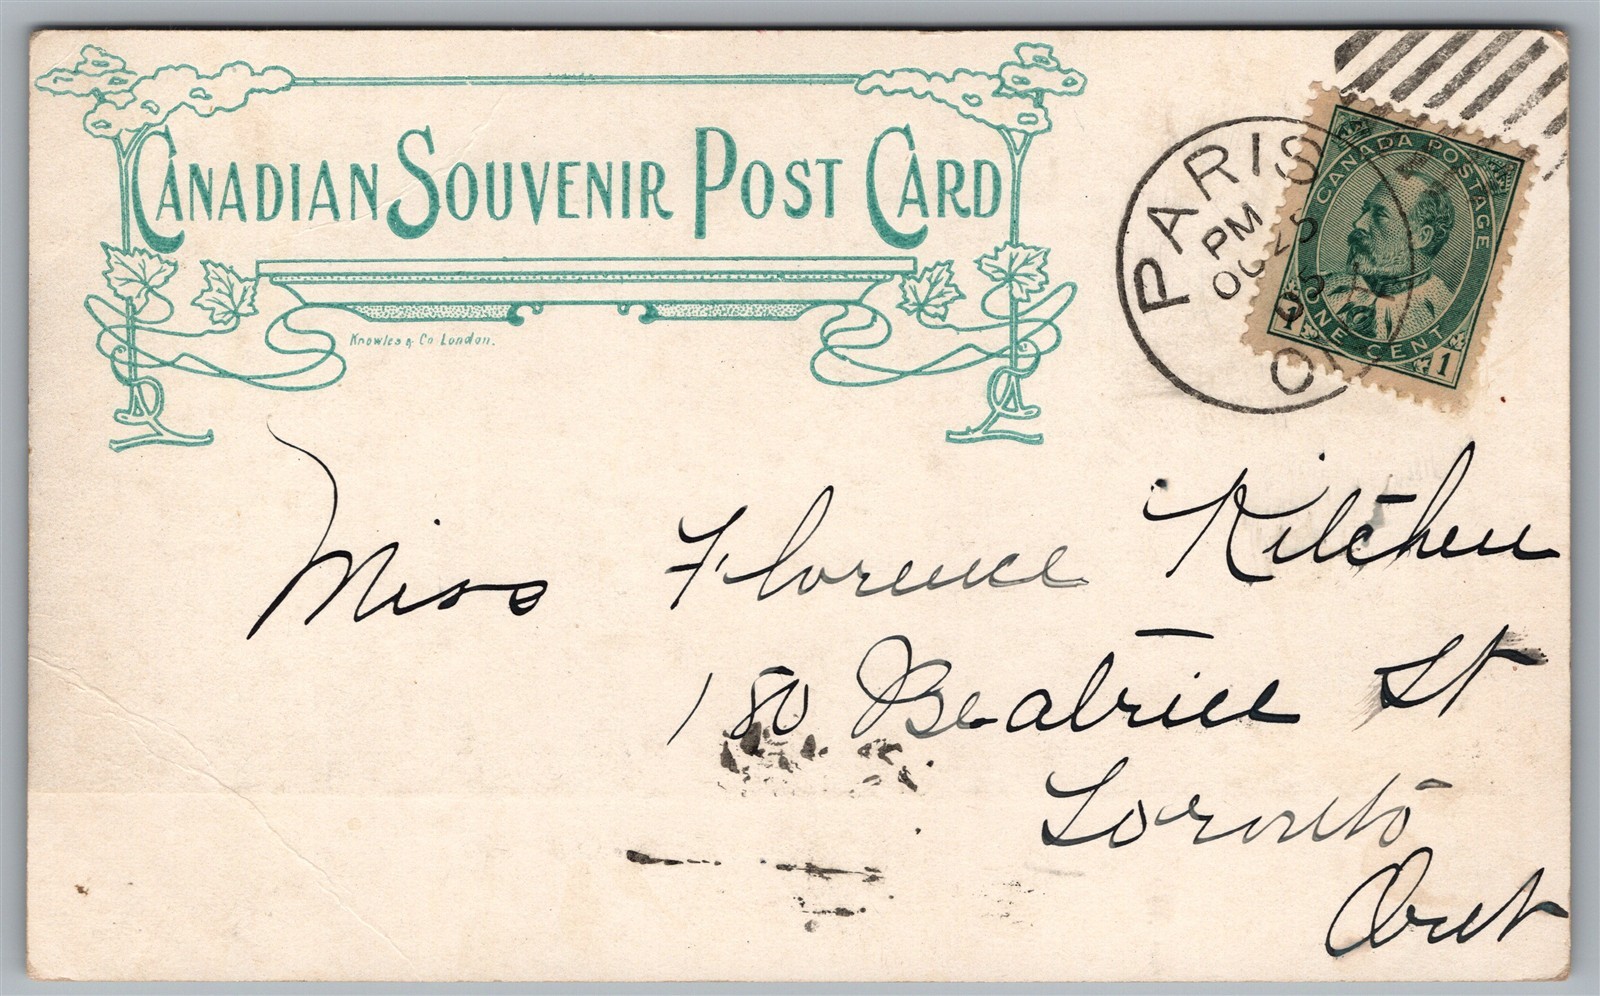 CANADIAN SOUVENIR POST CARD
Knowles & Co London.
PARIS
PM
O
CANADA POSTAGE
ONE CENT
1 1
Miss Florence Kitchen
180 Beatrice St
Toronto
Ont